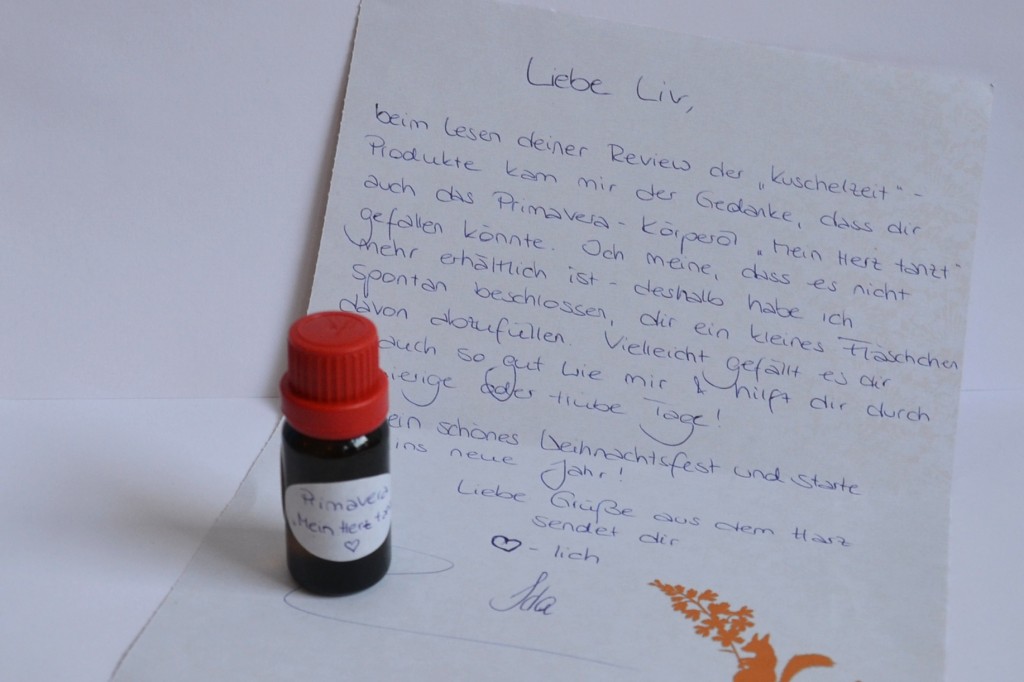 Liebe Liv,
beim Lesen deiner Review der „Kuschelzeit“-
Produkte kam mir der Gedanke, dass dir
auch das Primavera-Körperöl „Mein Herz tanzt“
gefallen könnte. Ich meine, dass es nicht
mehr erhältlich ist - deshalb habe ich
spontan beschlossen, dir ein kleines Fläschchen
davon abzufüllen. Vielleicht gefällt es dir
auch so gut wie mir & hilft dir durch
oder trübe Tage!
ein schönes Weihnachtsfest und starte
ins neue Jahr!
Liebe Grüße aus dem Harz
sendet dir
♡-lich
Ida
Primavera
„Mein Herz
♡